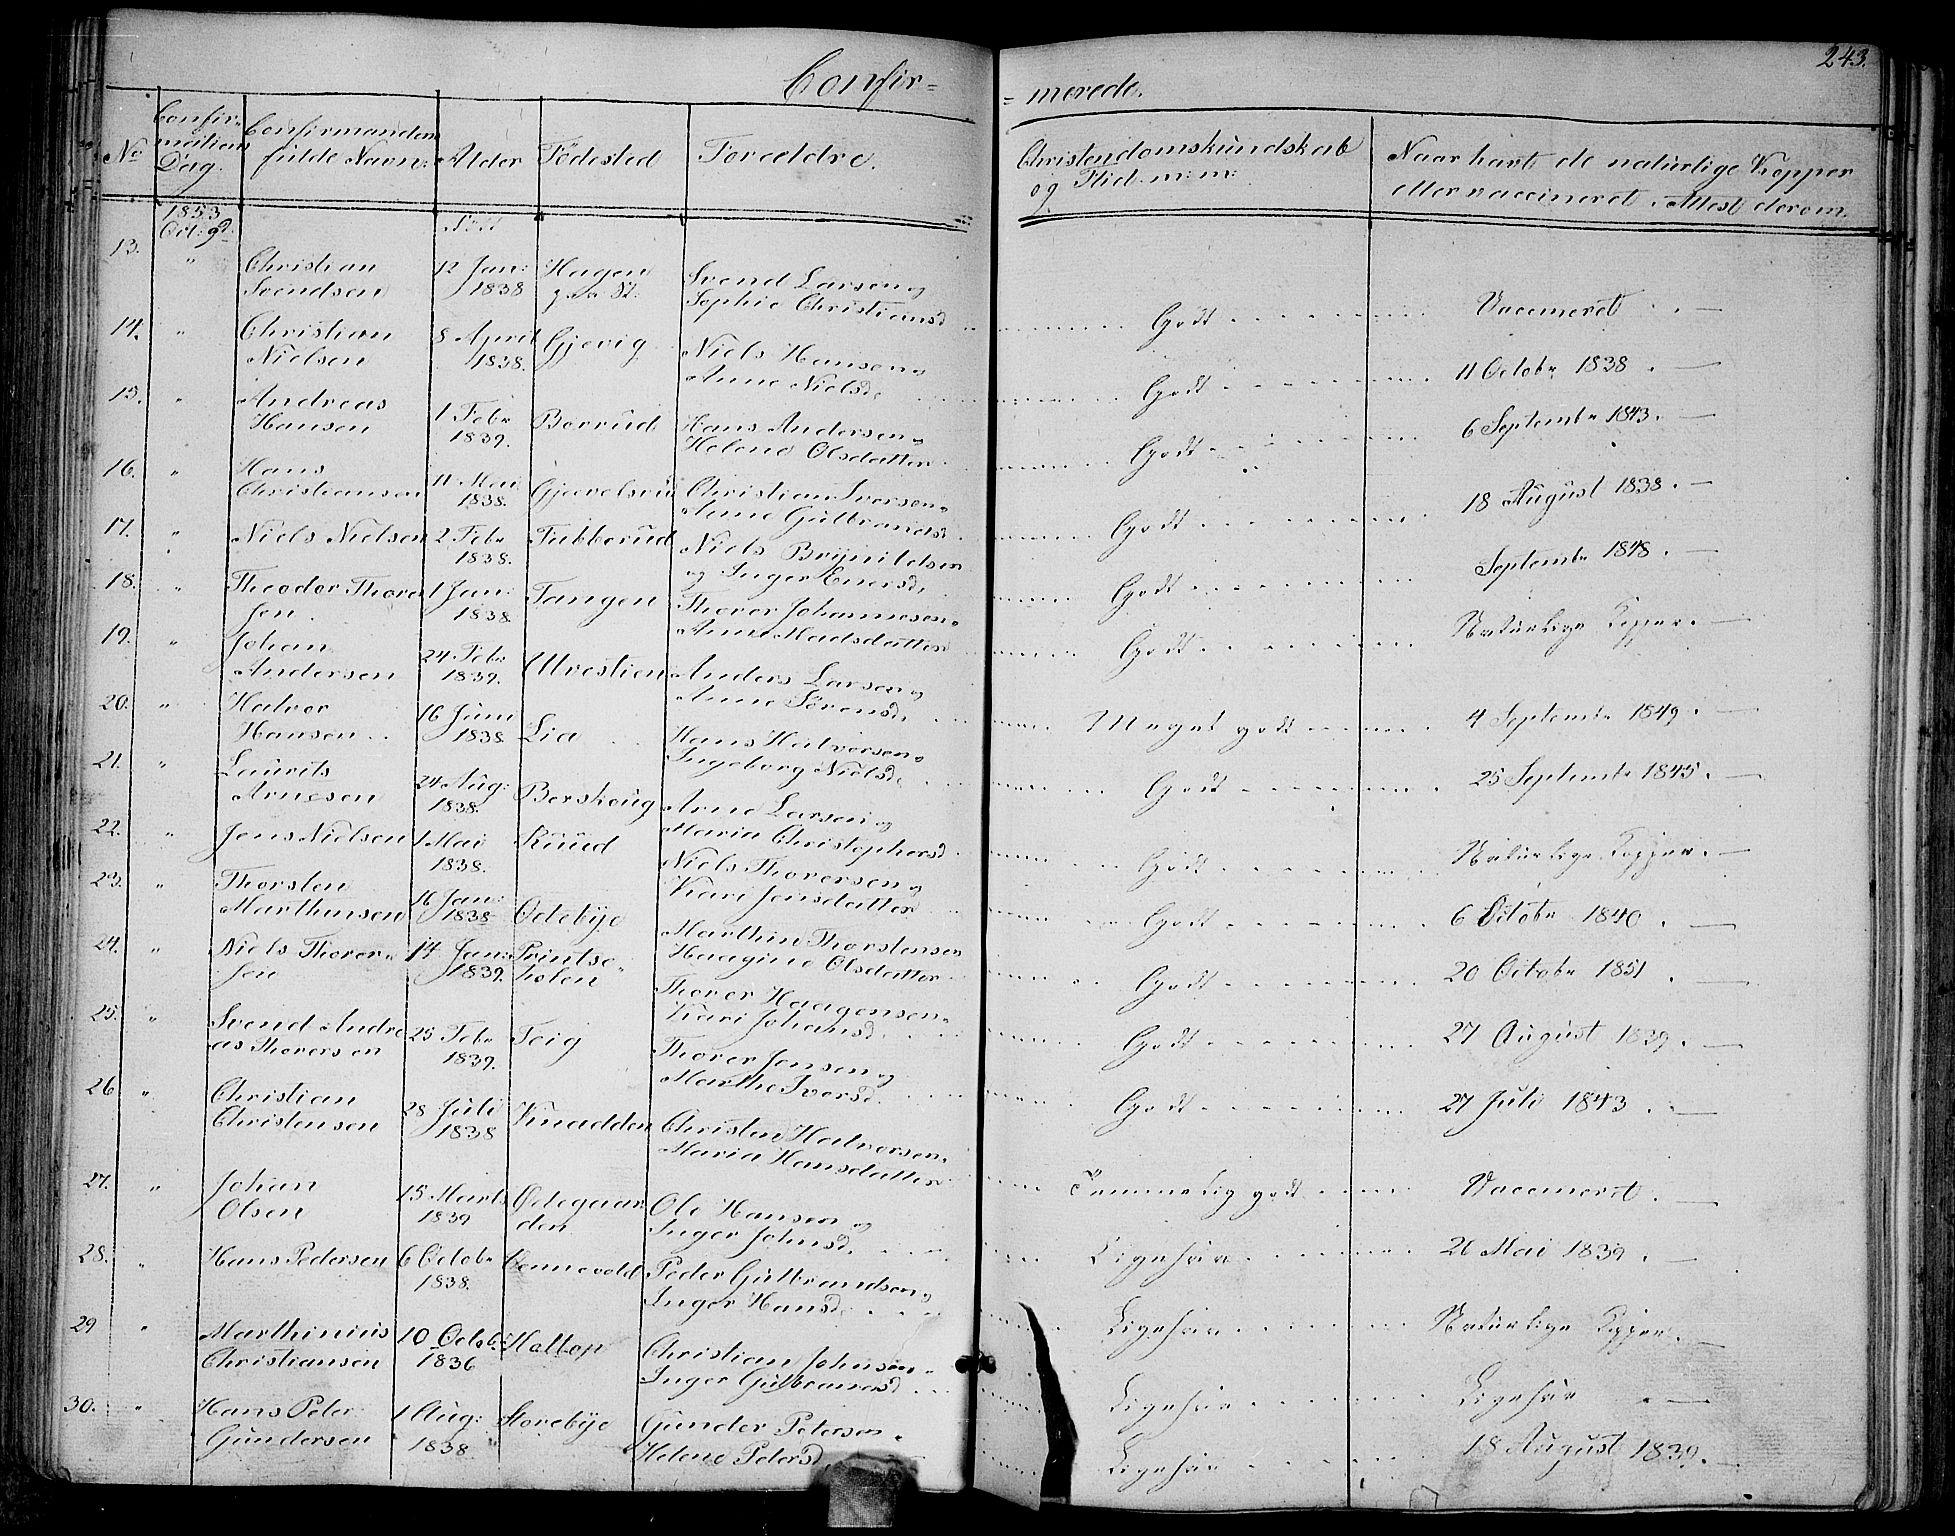 243.
Confir=
= merede.
No
Confir=
mations
Dag.
Confirmandens
fulde Navn.
Alder
Födested
Forældre.
Christendomskundskab
og Flid m: m:
Naar havt de naturlige Kopper
eller vaccineret. Attest derom.
1853
Oct: 9d
13. " Christian Svendsen 12 Jan: 1838 Hagen Svend Larsen og Sophie Christiansd Godt Vaccineret
14. " Christian Nielsen 8 April 1838. Gjevig Niels Hansen og Anne Nielsd. Godt 11 Octobr 1838
15. " Andreas Hansen 1 Febr 1839. Berrud Hans Andersen og Helene Olsdatter Godt 6 Septembr 1843.
16. " Hans Christiansen 11 Mai 1838. Gjevelsrud Christian Iversen Anne Gulbrandsd. Godt 18 August 1838.
17. " Niels Nielsen 2 Febr 1838. Fubberud Niels Brynildsen og Inger Enersd. Godt Septembr 1848.
18. " Theodor Thoresen 1 Jan: 1838. Tangen Thorer Johannesen Anne Madsdatter Godt Naturlige Kopper.
19. " Johan Andersen 24 Febr 1839. Ulvestien Anders Larsen og Anne Sörensd. Meget godt 4 Septembr 1849.
20. " Halvor Hansen 16 Juni 1838. Lia Hans Halvorsen Ingeborg Nielsd. Godt 25 Septembr 1845.
21. " Laurits Arnesen 24 Aug: 1838. Berskoug Arne Larsen og Maria Christophersd Godt Naturlige Kopper.
22. " Jens Nielsen 1 Mai 1838. Ruud Niels Thorersen og Kari Jensdatter Godt 6 Octobr 1840.
23. " Thorsten Marthinsen 16 Jan: 1838 Ödebye Marthin Thorstensen Haagine Olsdatter Godt 20 Octobr 1851
24. " Niels Thorer= sen 14 Jan: 1839. Printse= holen Thorer Haagensen Kari Johansd. Godt 27 August 1839.
25. " Svend Andre as Thorersen 25 Febr 1839. Teig Thorer Jensen og Marthe Iversd. Godt 27 Juli 1843.
26 " Christian Christensen 28 Juli 1838 Knadden Christen Halvorsen Maria Hansdatter Temmelig godt Vaccineret.
27. " Johan Olsen 15 Marts 1839 Ödegaar den Ole Hansen og Inger Johnsd. Ligesaa 26 Mai 1839
28. " Hans Pedersen 6 Octobr 1838. Connevold Peder Gulbrandsen og Inger Hansd. Ligesaa Naturlige Kopper.
29 " Marthinius Christiansen 10 Octob: 1836 Holtop Christian Johnsen Inger Gulbransd Ligesaa Ligesaa
30. " Hans Peter Gundersen 1 Aug: 1838 Storebye Gunder Petersen Helene Petersd Ligesaa 18 August 1839.